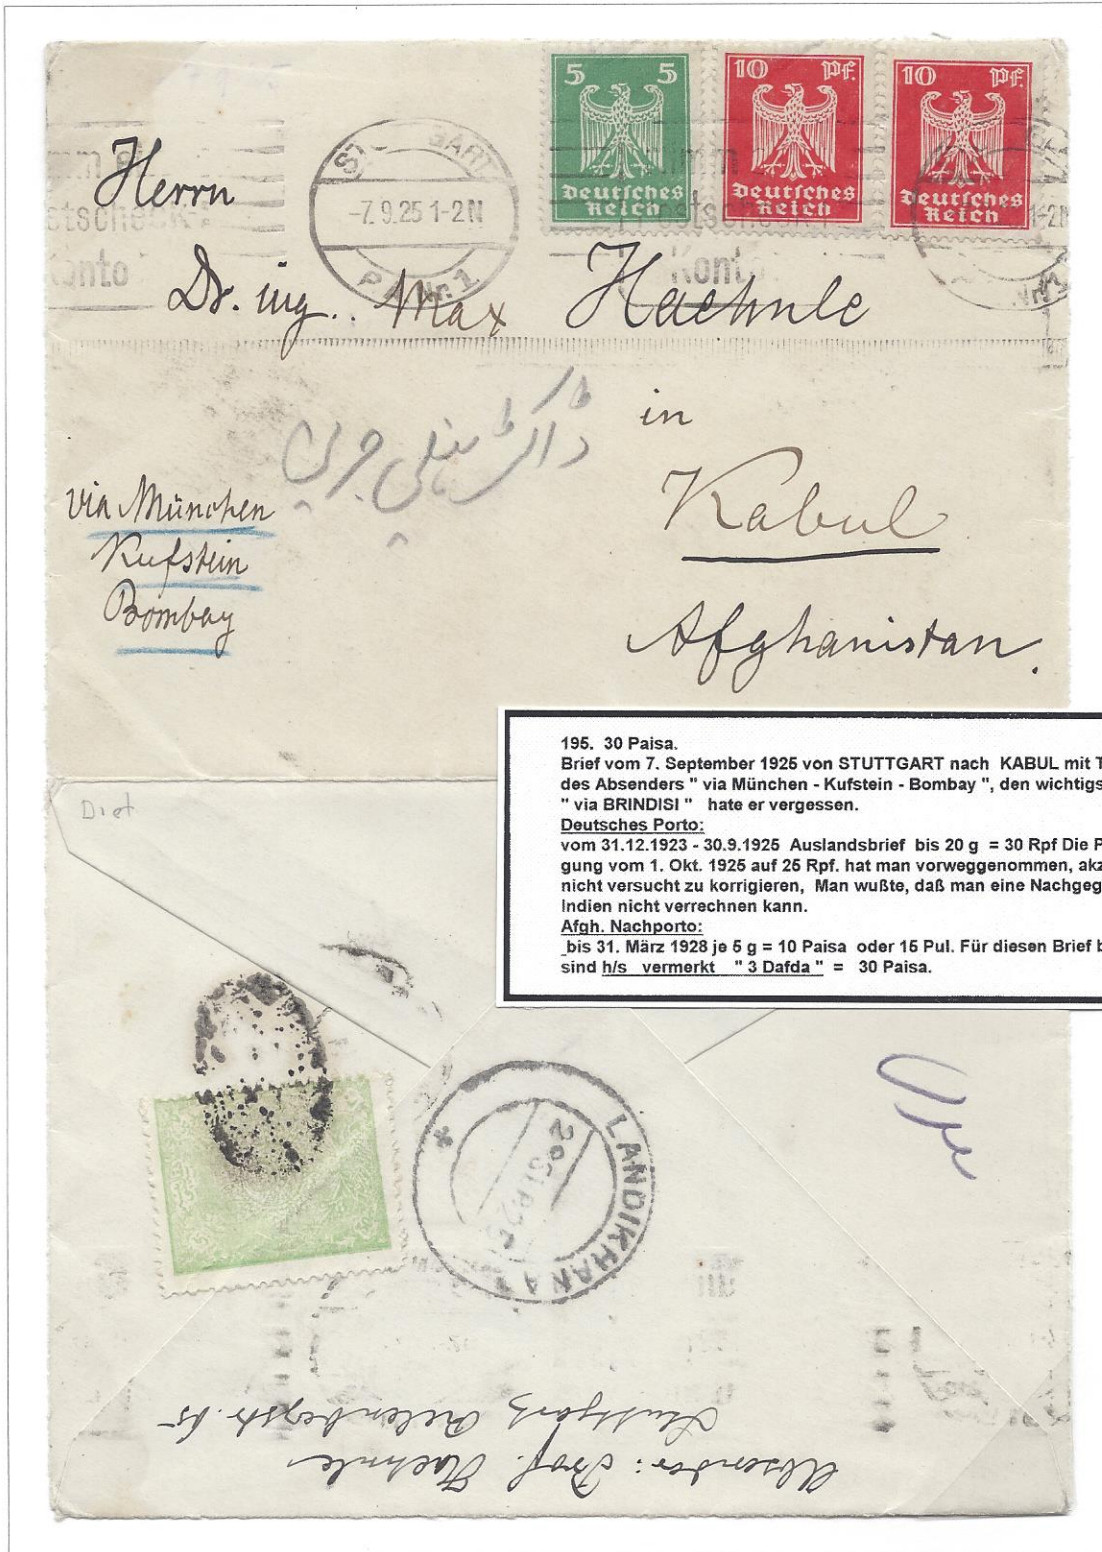 5 5
Deutsches
Reich
10 Pf.
Deutsches
Reich
10 Pf.
Deutsches
Reich
-7.9.25 1-2N
P.A. Nr. 1
Konto
Herrn
Dr. ing. Max Haehnle
in
Kabul
Afghanistan.
via München
Kufstein
Bombay
ڈاکٹر
195. 30 Paisa.
Brief vom 7. September 1925 von STUTTGART nach KABUL mit T
des Absenders " via München - Kufstein - Bombay ", den wichtigs
" via BRINDISI " hate er vergessen.
Deutsches Porto:
vom 31.12.1923 - 30.9.1925 Auslandsbrief bis 20 g = 30 Rpf Die P
gung vom 1. Okt. 1925 auf 25 Rpf. hat man vorweggenommen, akz
nicht versucht zu korrigieren, Man wußte, daß man eine Nachgeg
Indien nicht verrechnen kann.
Afgh. Nachporto:
bis 31. März 1928 je 5 g = 10 Paisa oder 15 Pul. Für diesen Brief b
sind h/s vermerkt " 3 Dafda " = 30 Paisa.
LANDIKHANA
Absender: Prof. Haehnle
Stuttgart